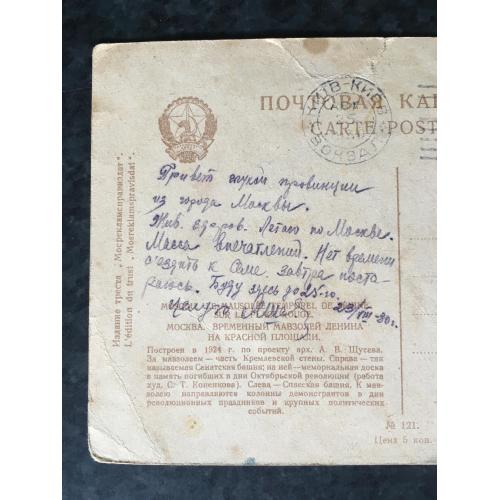 ПОЧТОВАЯ КАР
CARTE-POST
КИЇВ-КИЕВ
ВОКЗАЛ
Привет глухой провинции
из города Москвы.
Жив. здоров. Летаю по Москве.
Масса впечатлений. Нет времени
съездить к Семе. Завтра поста-
раюсь. Буду здесь до 25-го.
Целую
23/VIII-30г.
SUR LA PLACE ROUGE.
МОСКВА. ВРЕМЕННЫЙ МАВЗОЛЕЙ ЛЕНИНА
НА КРАСНОЙ ПЛОЩАДИ.
Построен в 1924 г. по проекту арх. А. В. Щусева.
За мавзолеем — часть Кремлевской стены. Справа — так
называемая Сенатская башня; на ней — мемориальная доска
в память погибших в дни Октябрьской революции (работа
худ. С. Т. Коненкова). Слева — Спасская башня. К мав-
золею направляются колонны демонстрантов в дни
революционных праздников и крупных политических
событий.
№ 121.
Цена 5 коп.
Издание треста „Мосрекламсправиздат".
L'édition du trust „Mosreklamspravisdat".